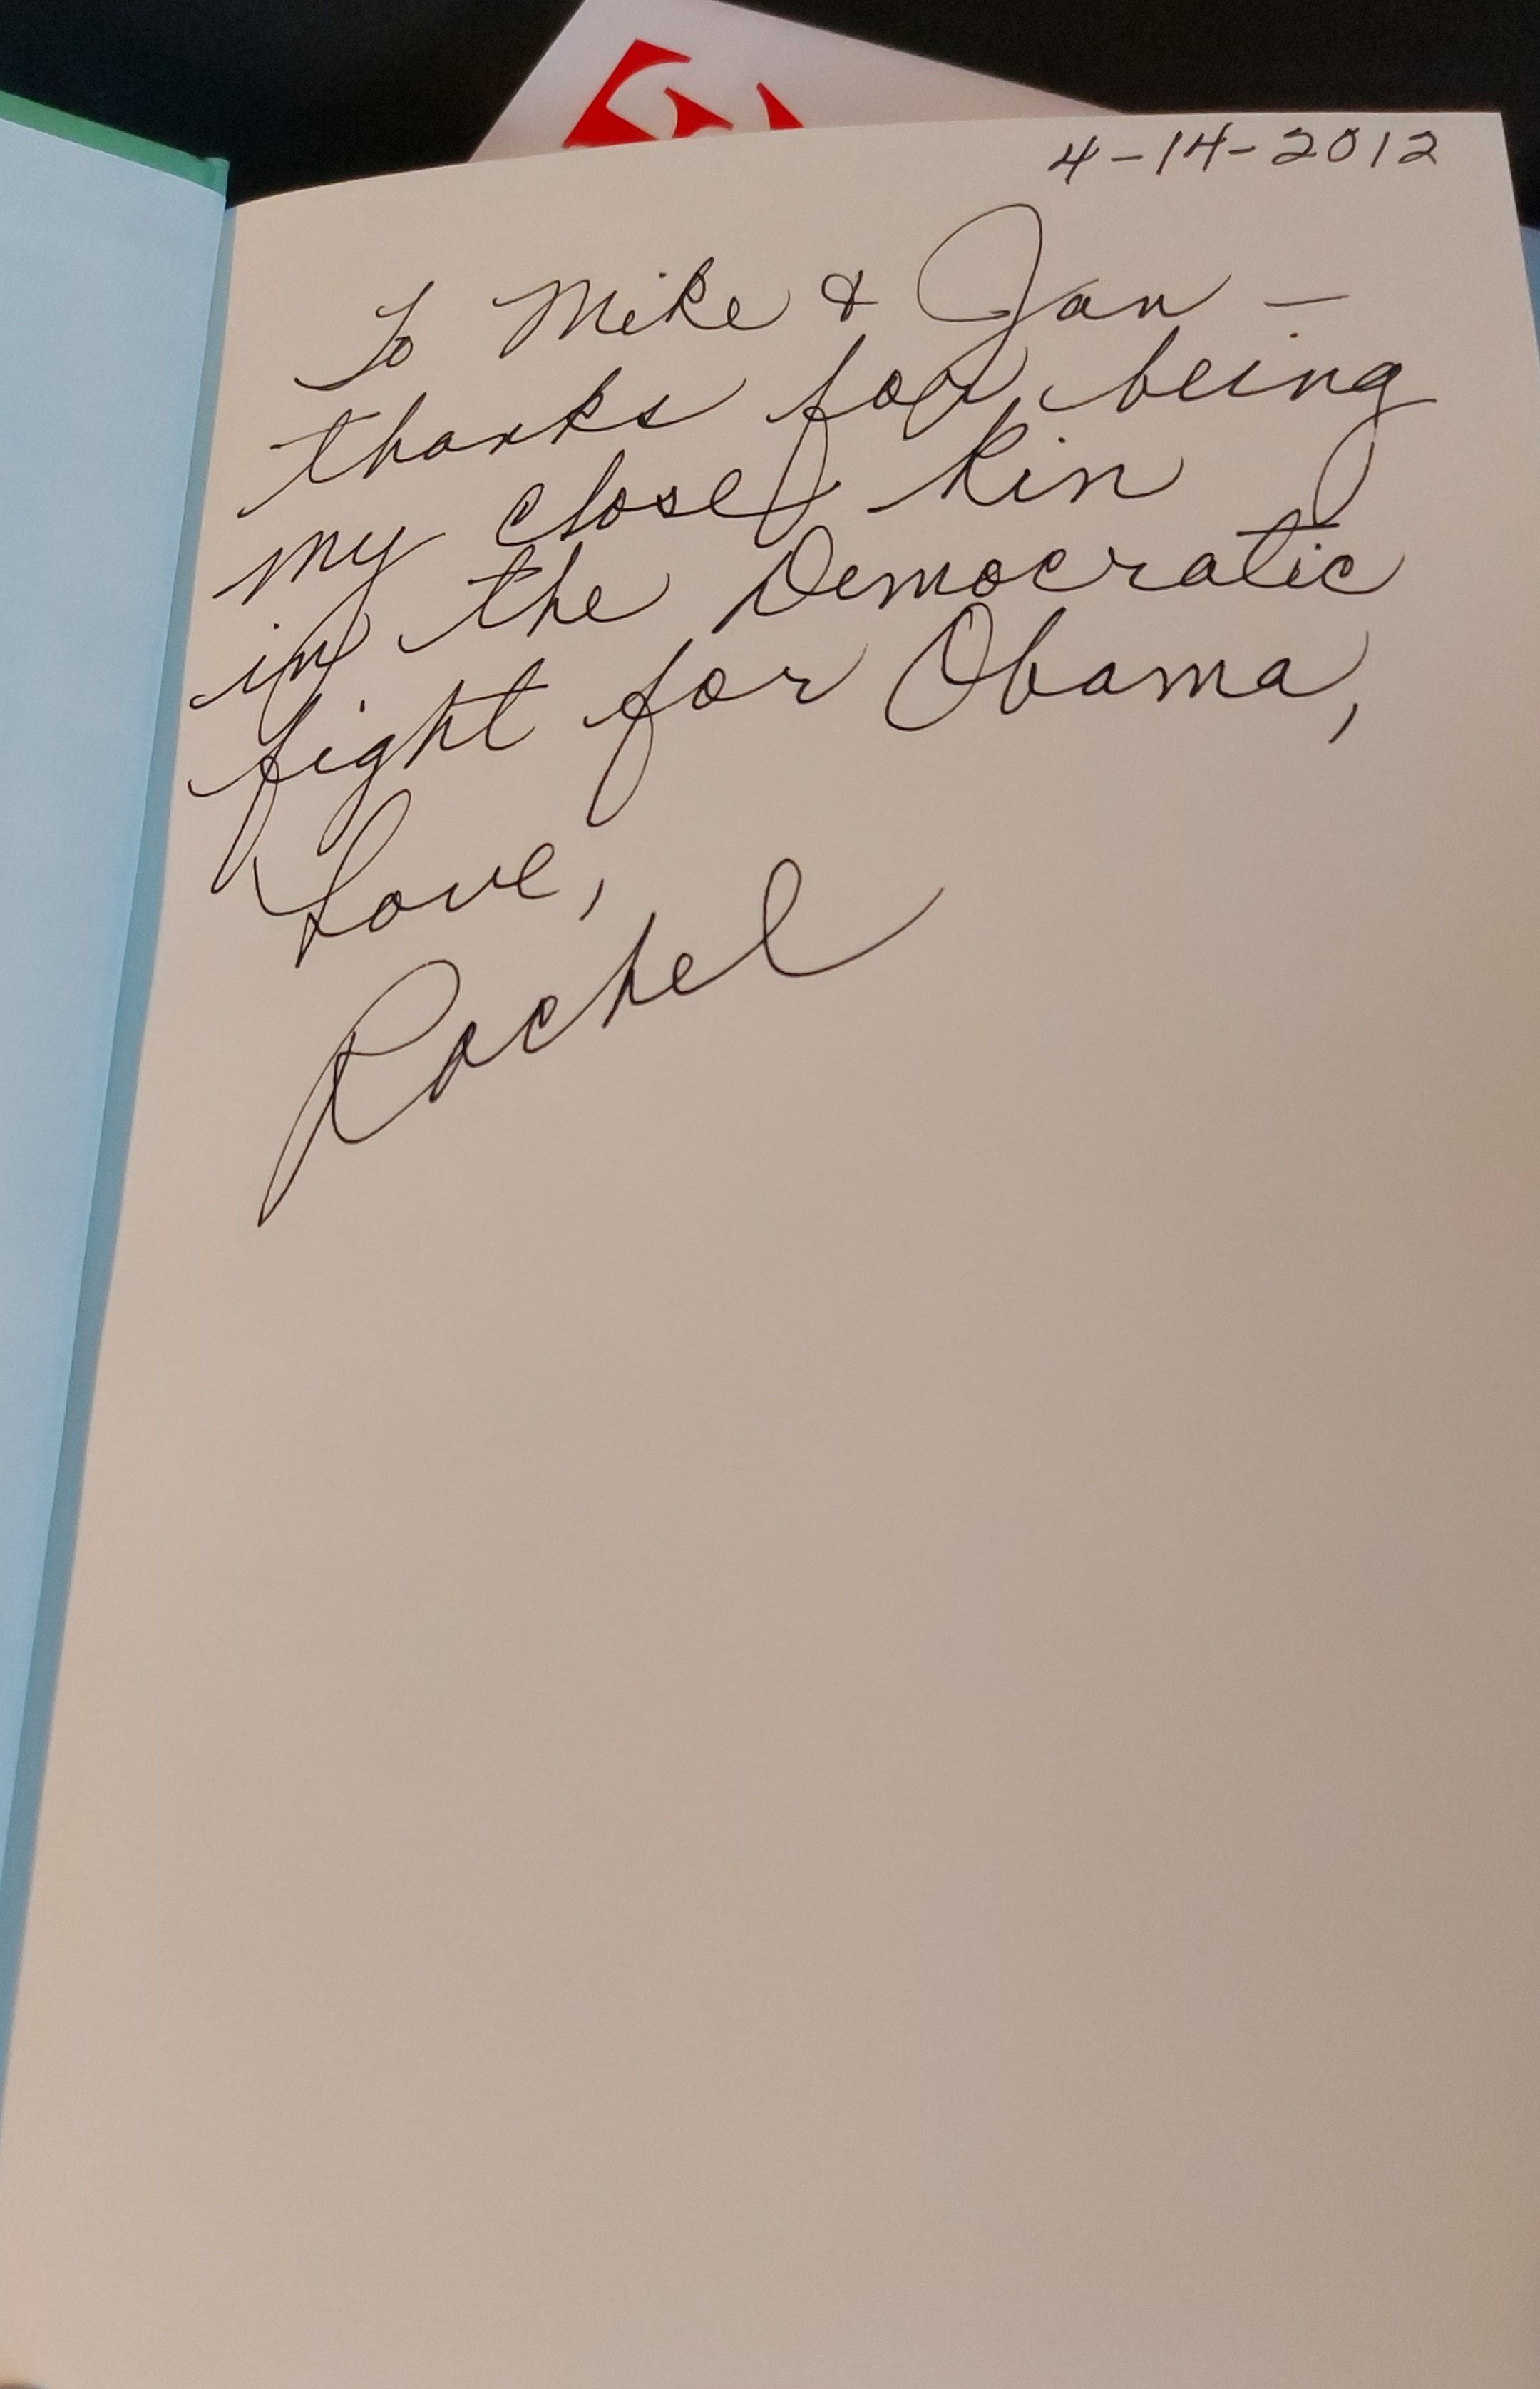 4-14-2012
To Mike & Jan –
thanks for being
my close kin
in the Democratic
fight for Obama,
Love,
Rachel